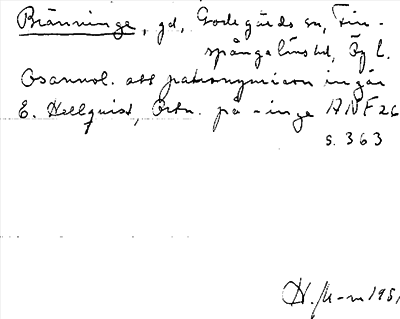 Bränninge, gd, Godegårds sn, Fin-
spångaläns hd, Ög l.
Osannol. att patronymicon ingår
E. Hellquist, Ortn. på -inge ANF 26
s. 363
H. M-m 1981